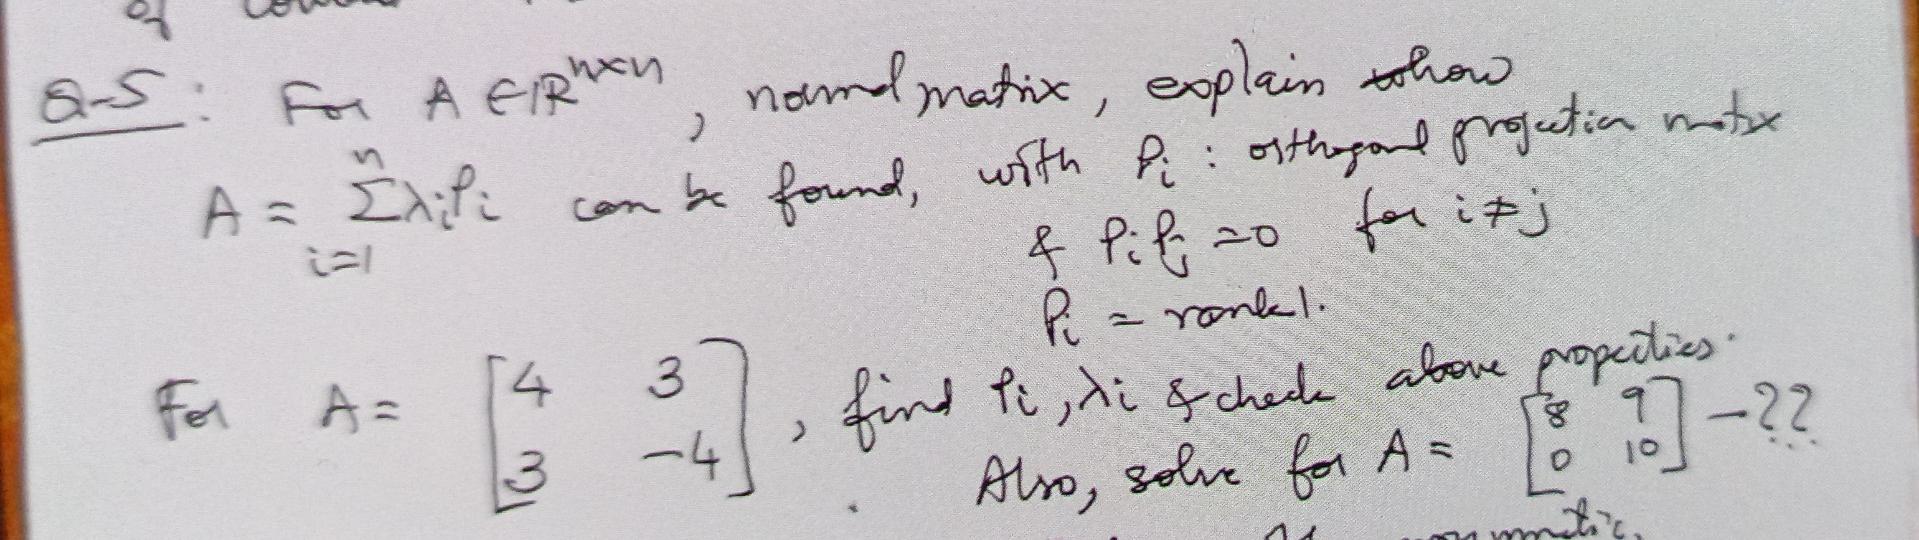 of
Q-5: For A ∈ ℝ^{n×n}, normal matrix, explain how
A = \sum_{i=1}^{n} λ_i P_i can be found, with P_i : orthogonal projection matrix
& P_i P_j = 0 for i ≠ j
P_i = rank 1.
For A = [4 3; 3 -4], find P_i, λ_i & check above properties.
Also, solve for A = [8 9; 0 10] - ??